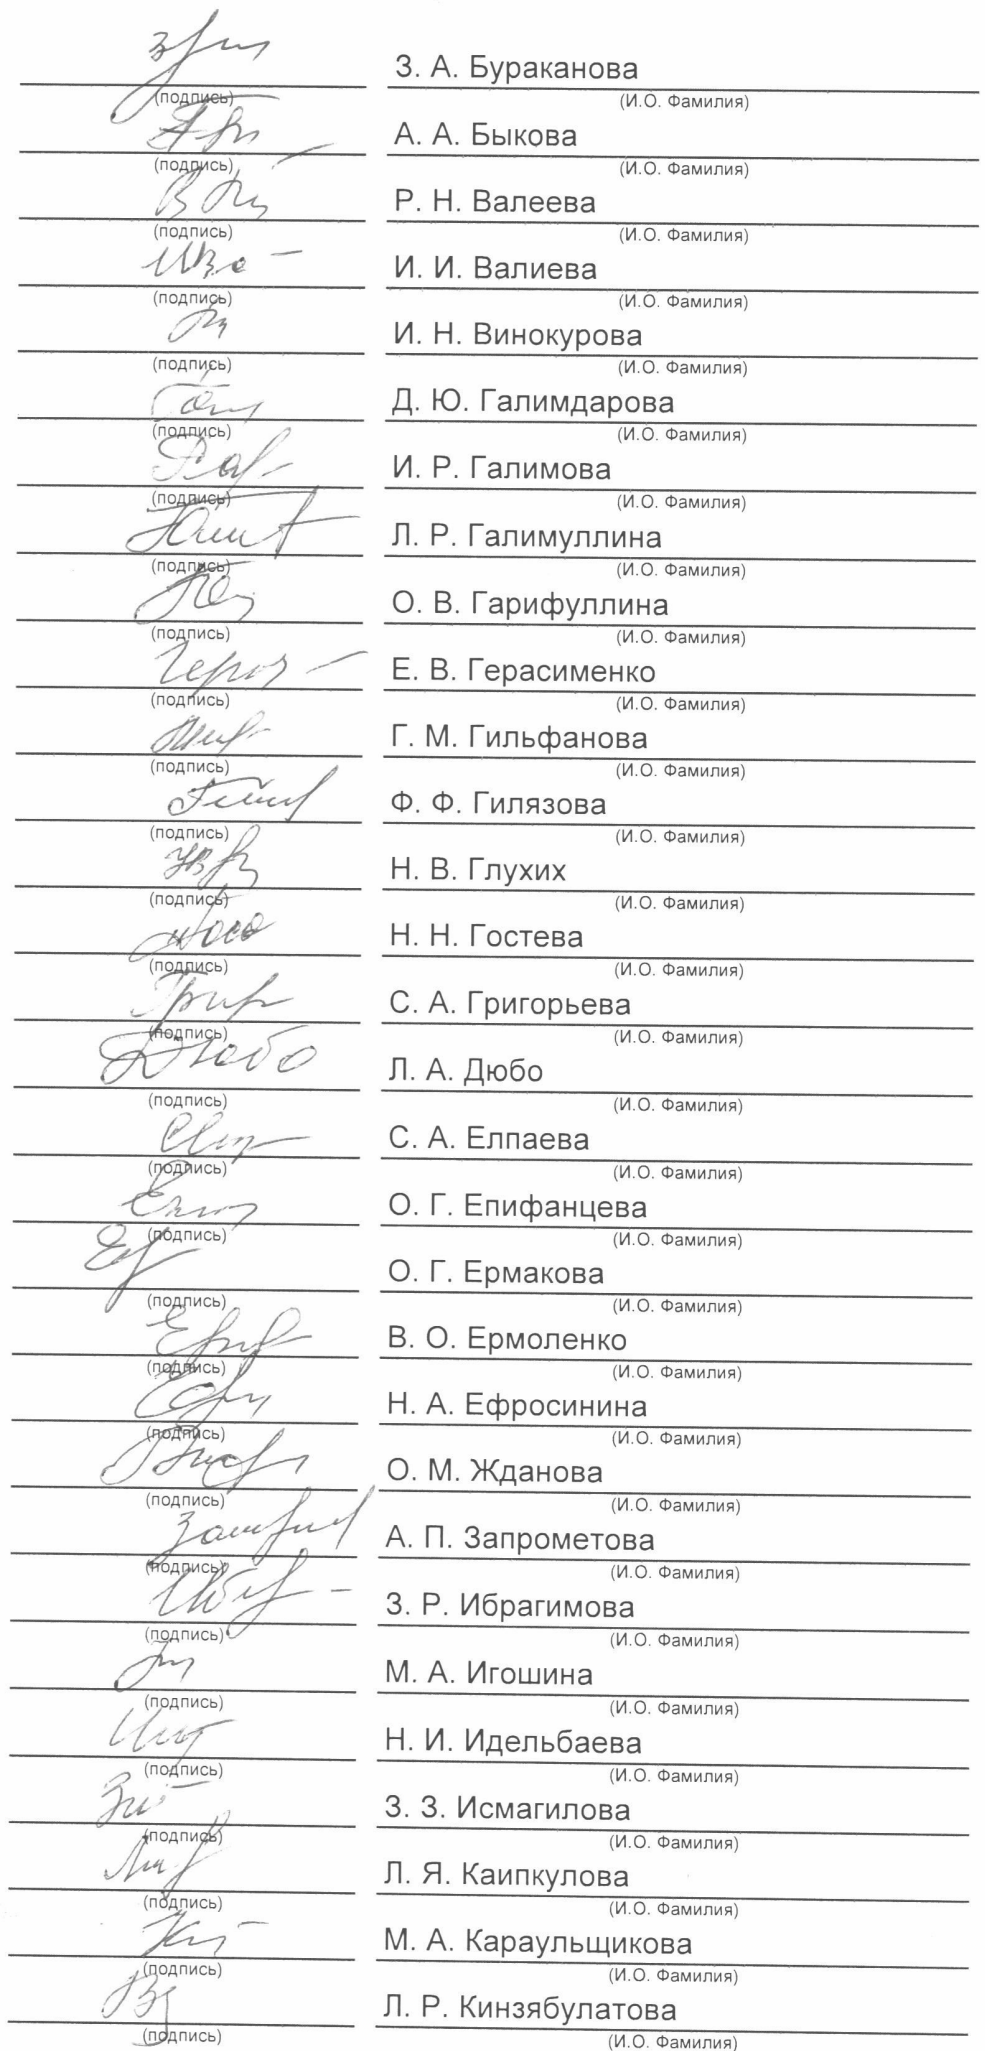 З. А. Бураканова
(подпись) (И.О. Фамилия)
А. А. Быкова
(подпись) (И.О. Фамилия)
Р. Н. Валеева
(подпись) (И.О. Фамилия)
И. И. Валиева
(подпись) (И.О. Фамилия)
И. Н. Винокурова
(подпись) (И.О. Фамилия)
Д. Ю. Галимдарова
(подпись) (И.О. Фамилия)
И. Р. Галимова
(подпись) (И.О. Фамилия)
Л. Р. Галимуллина
(подпись) (И.О. Фамилия)
О. В. Гарифуллина
(подпись) (И.О. Фамилия)
Е. В. Герасименко
(подпись) (И.О. Фамилия)
Г. М. Гильфанова
(подпись) (И.О. Фамилия)
Ф. Ф. Гилязова
(подпись) (И.О. Фамилия)
Н. В. Глухих
(подпись) (И.О. Фамилия)
Н. Н. Гостева
(подпись) (И.О. Фамилия)
С. А. Григорьева
(подпись) (И.О. Фамилия)
Дюбо Л. А. Дюбо
(подпись) (И.О. Фамилия)
С. А. Елпаева
(подпись) (И.О. Фамилия)
О. Г. Епифанцева
(подпись) (И.О. Фамилия)
О. Г. Ермакова
(подпись) (И.О. Фамилия)
В. О. Ермоленко
(подпись) (И.О. Фамилия)
Н. А. Ефросинина
(подпись) (И.О. Фамилия)
О. М. Жданова
(подпись) (И.О. Фамилия)
А. П. Запрометова
(подпись) (И.О. Фамилия)
З. Р. Ибрагимова
(подпись) (И.О. Фамилия)
М. А. Игошина
(подпись) (И.О. Фамилия)
Н. И. Идельбаева
(подпись) (И.О. Фамилия)
З. З. Исмагилова
(подпись) (И.О. Фамилия)
Л. Я. Каипкулова
(подпись) (И.О. Фамилия)
М. А. Караульщикова
(подпись) (И.О. Фамилия)
Л. Р. Кинзябулатова
(подпись) (И.О. Фамилия)